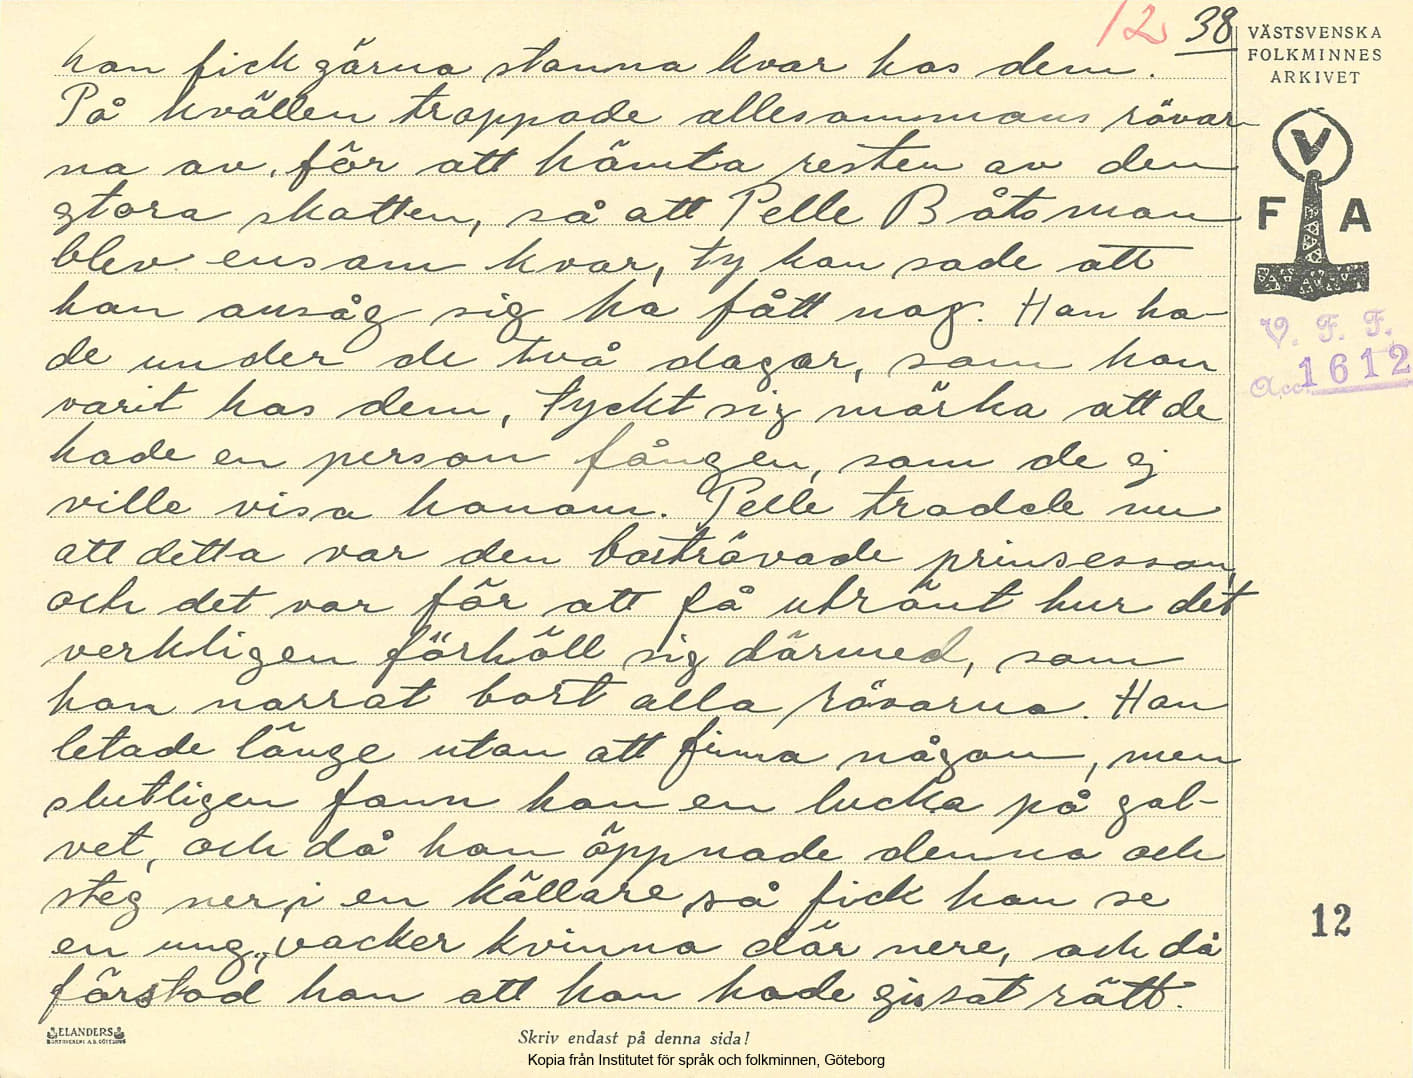 12 38
VÄSTSVENSKA
FOLKMINNES
ARKIVET
han fick gärna stanna kvar hos dem.
På kvällen troppade allesammans rövar-
na av, för att hämta resten av den
stora skatten, så att Pelle Båtsman
blev ensam kvar, ty han sade att
han ansåg sig ha fått nog. Han ha-
de under de två dagar, som han
varit hos dem, tyckt sig märka att de
hade en person fången, som de ej
ville visa honom. Pelle trodde nu
att detta var den bortrövade prinsessan,
och det var för att få utrönt hur det
verkligen förhöll sig därmed, som
han narrat bort alla rövarna. Han
letade länge utan att finna någon, men
slutligen fann han en lucka på gol-
vet, och då han öppnade denna och
steg ner i en källare så fick han se
en ung, vacker kvinna där nere, och då
förstod han att han hade gissat rätt.
V
F A
V. F. F.
Acc. 1612
12
ELANDERS
BOKTRYCKERI A.B. GÖTEBORG
Skriv endast på denna sida!
Kopia från Institutet för språk och folkminnen, Göteborg